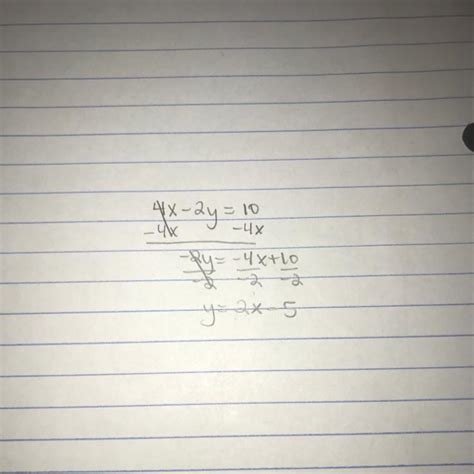 4x-2y=10
-4x -4x
-2y=-4x+10
-2 -2 -2
y=2x-5